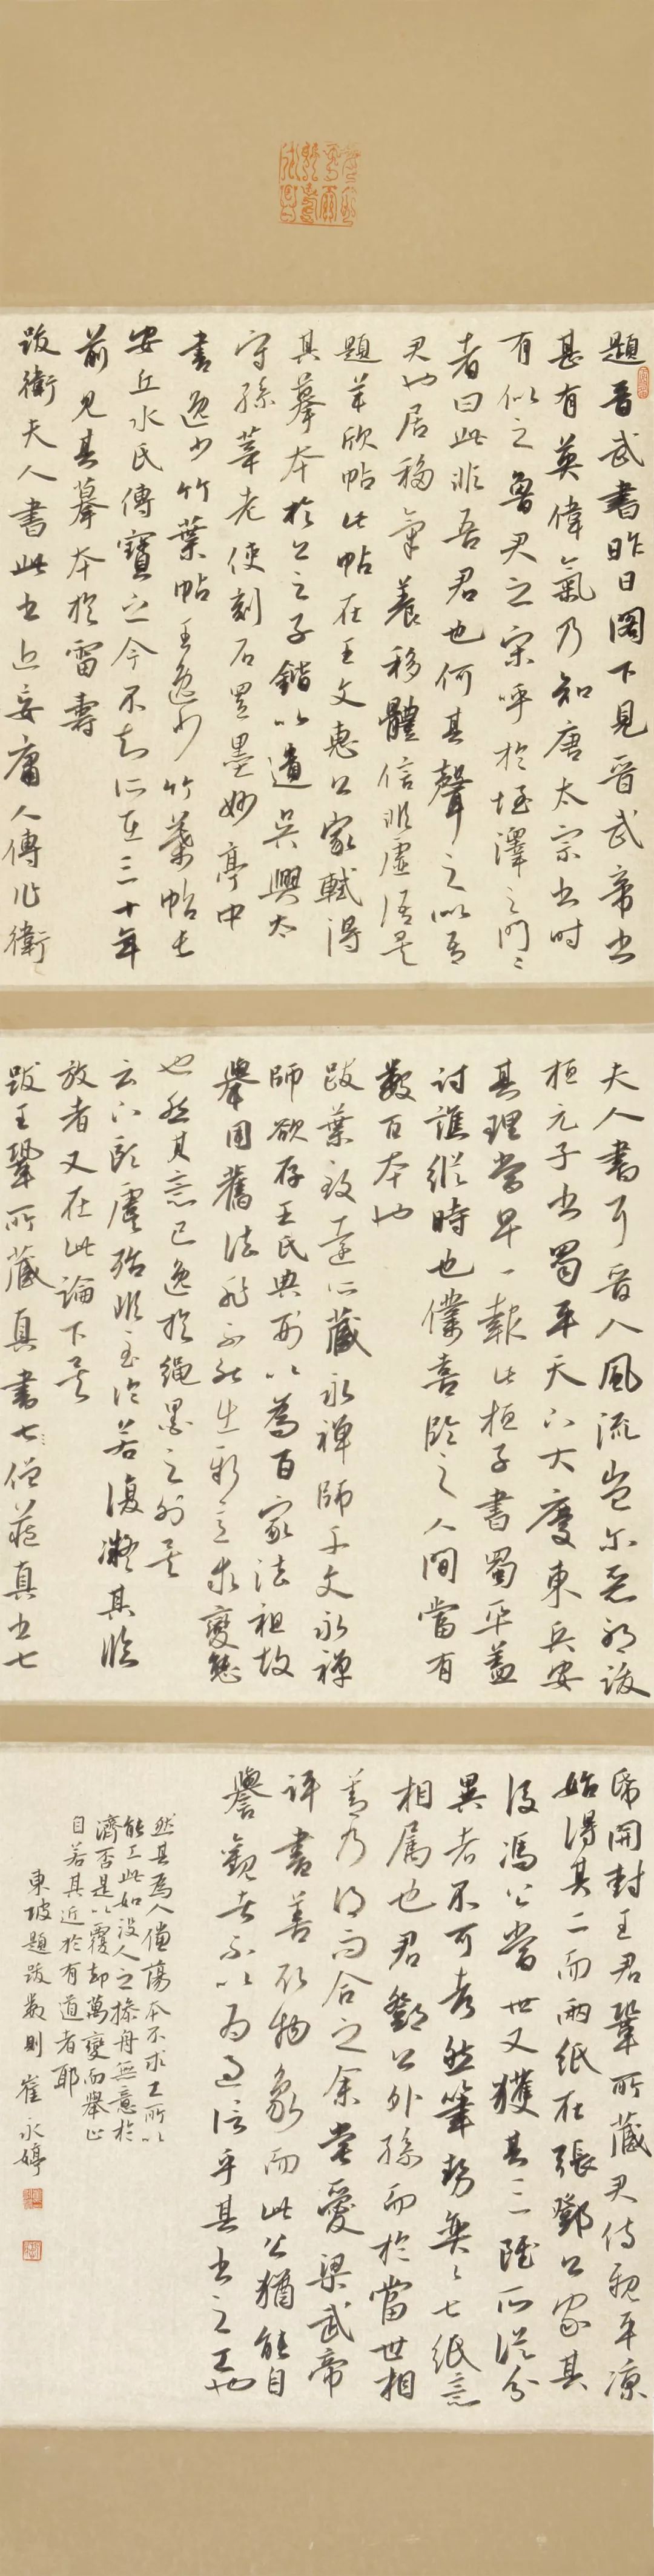 題晉武書昨日閣下見晉武帝書
甚有英偉氣乃知唐太宗書時
有似之魯君之宋呼於垤澤之門門
者曰此非吾君也何其聲之似吾
君也居移氣養移體信非虛語矣
題羊欣帖此帖在王文惠公家軾得
其摹本於公之子鍇以遺吳興太
守孫莘老使刻石置墨妙亭中
書逸少竹葉帖王逸少竹葉帖長
安丘水氏傳寶之今不知所在三十年
前見其摹本於雷壽
跋衛夫人書此書近妄庸人傳作衛
夫人書耳晉人風流豈爾惡耶跋
桓元子書蜀平天下大慶東兵安
其理當早一報此桓子書蜀平蓋
討譙縱時也僕喜臨之人間當有
數百本也
跋葉致遠所藏永禪師千文永禪
師欲存王氏典刑以為百家法祖故
舉用舊法非不能出新意求變態
也然其意已逸於繩墨之外矣
云下歐虞殆非至論若復疑其臨
放者又在此論下矣
跋王鞏所藏真書七僧藏真書七
紙開封王君鞏所藏君侍親平涼
始得其二而兩紙在張鄧公家其
後馮公當世又獲其三雖所從分
異者不可考然筆勢奕奕七紙意
相屬也君鄧公外孫而於當世相
善乃得而合之余嘗愛梁武帝
評書善取物象而此公猶能自
譽觀者不以為過信乎其書之工也
然其為人儻蕩本不求工所以
能工此如沒人之操舟無意於
濟否是以覆卻萬變而舉止
自若其近於有道者耶
東坡題跋數則 崔永婷